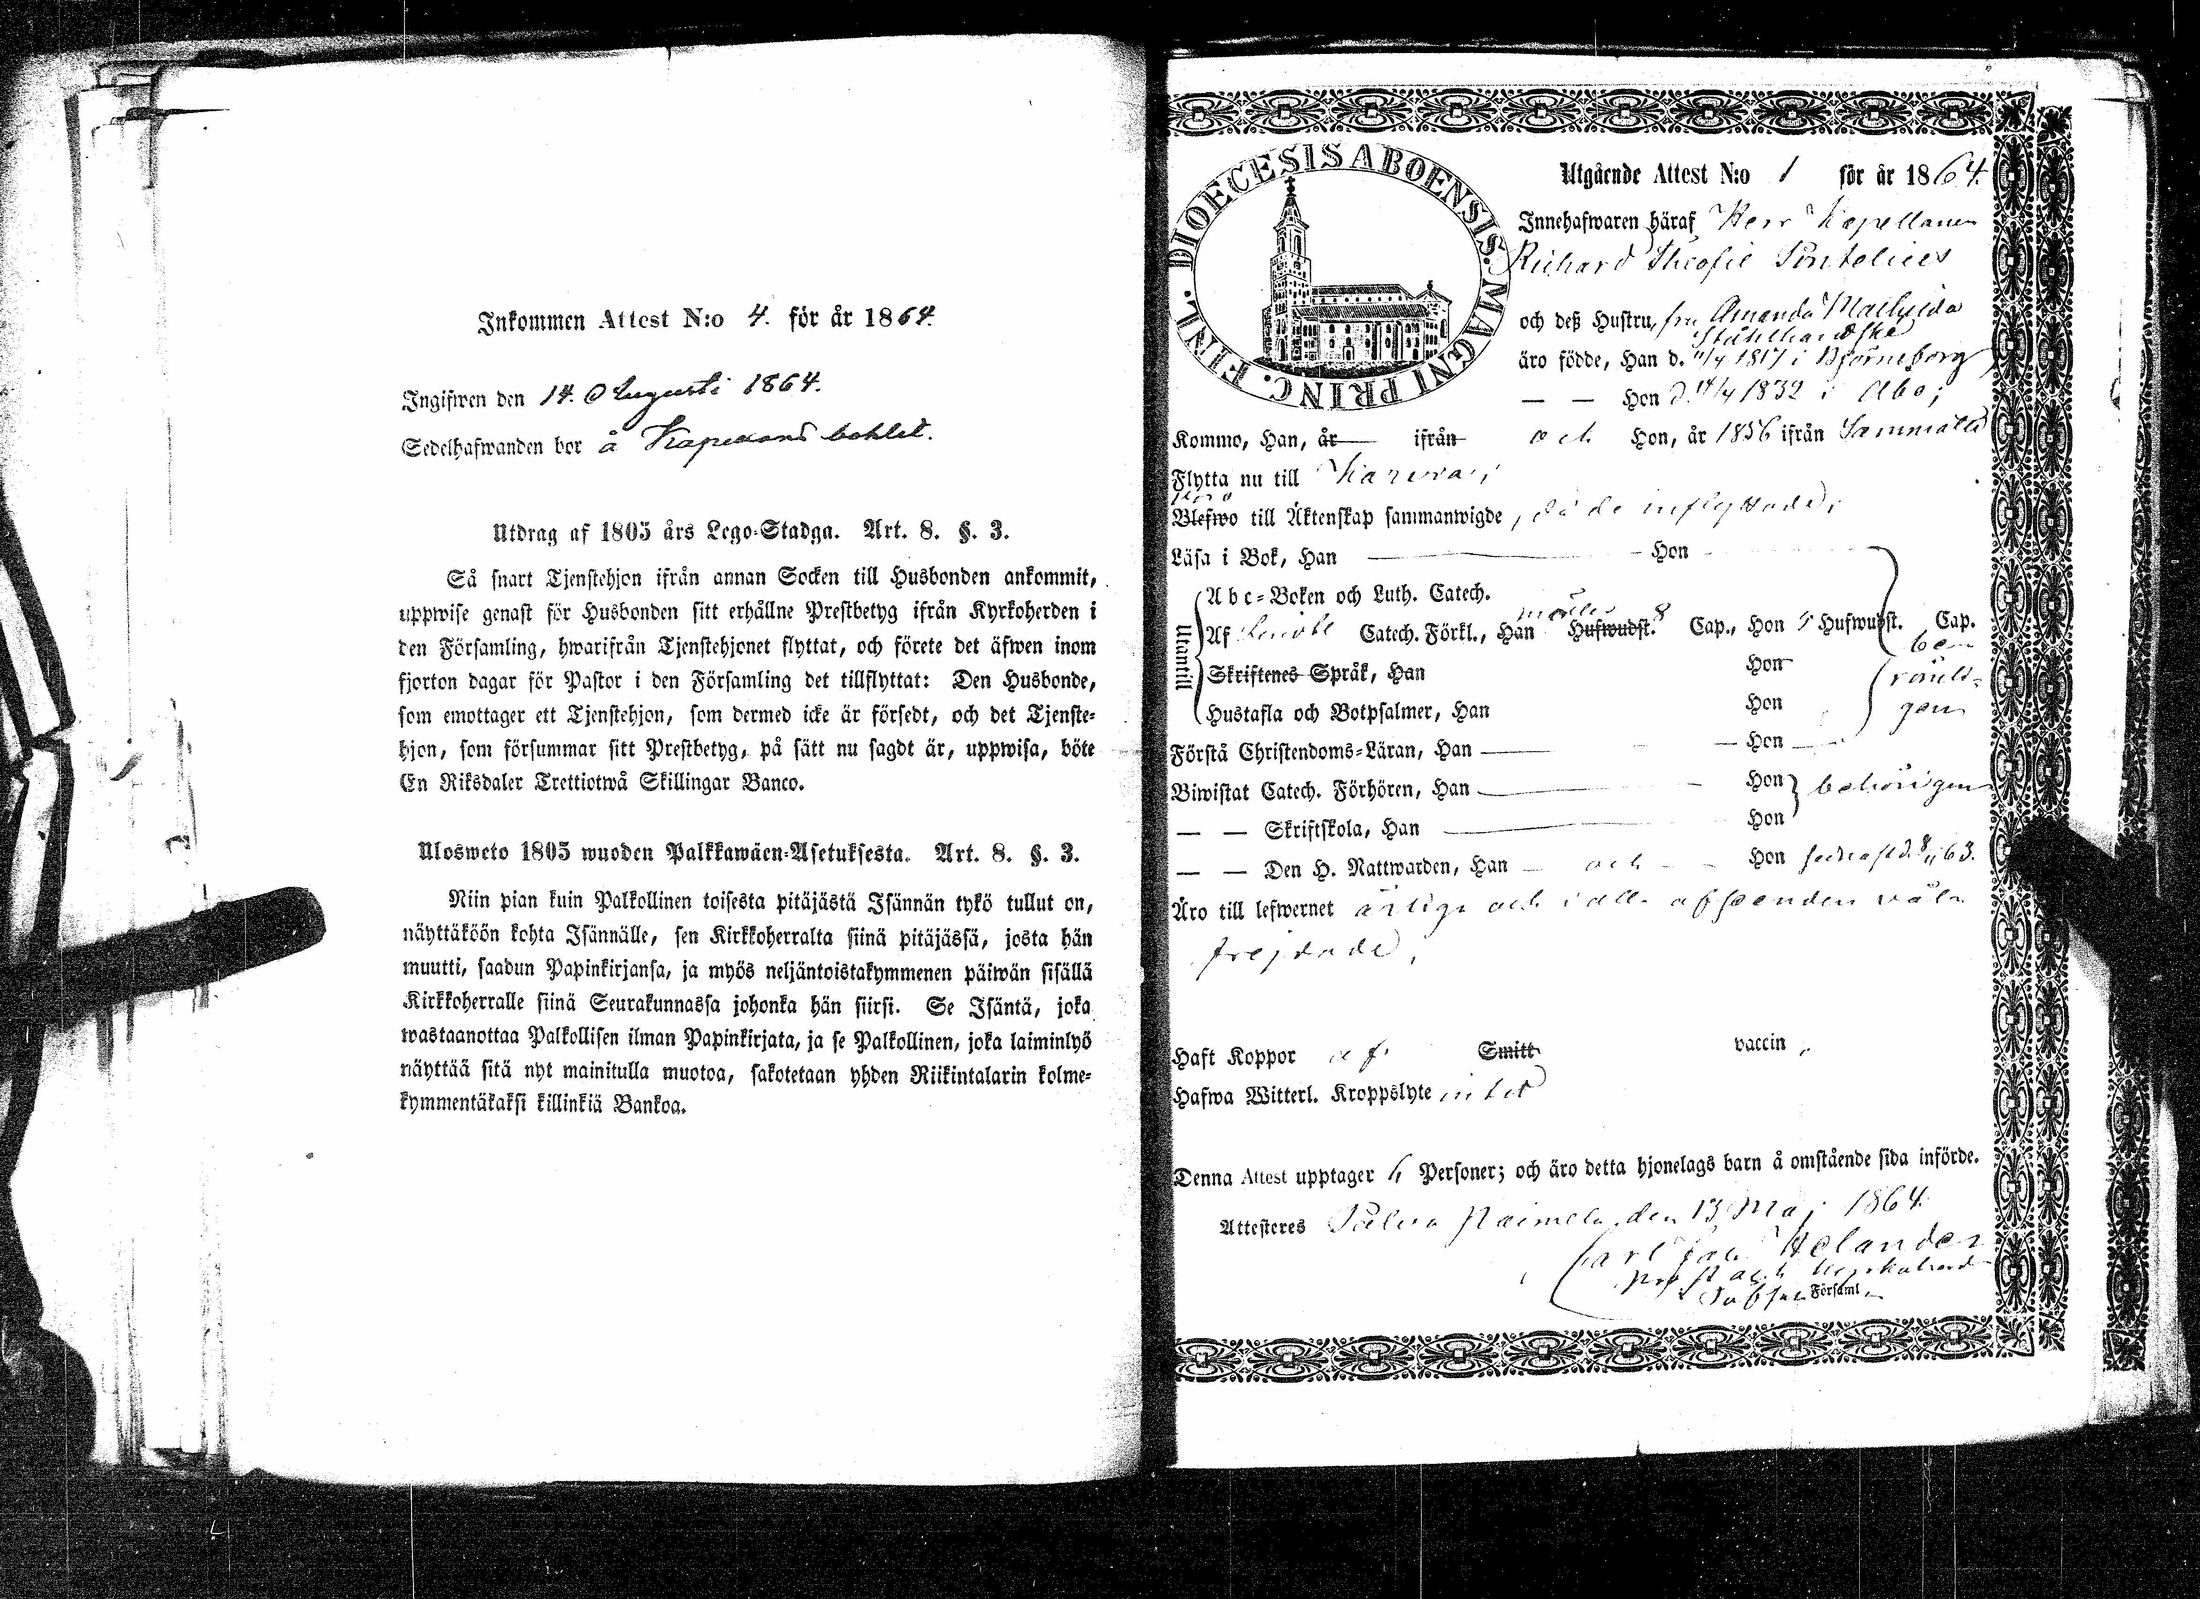 Inkommen Attest N:o 4. för år 1864.
Ingifwen den 14. Augusti 1864.
Sedelhafwanden bor å Kapellans bohlet.
Utdrag af 1805 års Lego-Stadga. Art. 8. §. 3.
Så snart Tjenstehjon ifrån annan Socken till Husbonden ankommit,
uppwise genast för Husbonden sitt erhållne Prestbetyg ifrån Kyrkoherden i
den Församling, hwarifrån Tjenstehjonet flyttat, och förete det äfwen inom
fjorton dagar för Pastor i den Församling det tillflyttat: Den Husbonde,
som emottager ett Tjenstehjon, som dermed icke är försedt, och det Tjenste-
hjon, som försummar sitt Prestbetyg, på sätt nu sagdt är, uppwisa, böte
En Riksdaler Trettiotwå Skillingar Banco.
Ulosweto 1805 wuoden Palkkawäen-Asetuksesta. Art. 8. §. 3.
Niin pian kuin Palkollinen toisesta pitäjästä Isännän tykö tullut on,
näyttäköön kohta Isännälle, sen Kirkkoherralta siinä pitäjässä, josta hän
muutti, saadun Papinkirjansa, ja myös neljäntoistakymmenen päiwän sisällä
Kirkkoherralle siinä Seurakunnassa johonka hän siirsi. Se Isäntä, joka
wastaanottaa Palkollisen ilman Papinkirjata, ja se Palkollinen, joka laiminlyö
näyttää sitä nyt mainitulla muotoa, sakotetaan yhden Riikintalarin kolme-
kymmentäkaksi killinkiä Bankoa.
DIOECESIS ABOENSIS. MAGNI PRINC. FINL.
Utgående Attest N:o 1 för år 1864.
Innehafwaren häraf Herr Kapellanen
Richard Theofil
och deß Hustru, fru Amanda Mathilda
Stålhandske
äro födde, Han d. 11/4 1817 i Björneborg
— — Hon d. 14/4 1832 i Åbo;
Kommo, Han, år ifrån och Hon, år 1856 ifrån
Flytta nu till
Woro
Blefwo till Äktenskap sammanwigde, då de inflyttade;
Läsa i Bok, Han Hon
Utantill
Abc-Boken och Luth. Catech.
Af Catech. Förkl., Han Hufwudst. 8 Cap., Hon 5 Hufwudst. Cap.
be-
Skriftenes Språk, Han Hon
römli-
Hustafla och Botpsalmer, Han Hon
gen
Förstå Christendoms-Läran, Han Hon
Biwistat Catech. Förhören, Han Hon behörigen
— — Skriftskola, Han Hon
— — Den H. Nattwarden, Han och Hon sednast d. 63.
Äro till lefwernet ärlige och i alla afseenden väl-
frejdade,
Haft Koppor af Smitt vaccin,
Hafwa Witterl. Kroppslyte intet
Denna Attest upptager 6 Personer; och äro detta hjonelags barn å omstående sida införde.
Attesteres den 13 Maj 1864.
Carl Helander
Prost och Kyrkoherde
i Församl.